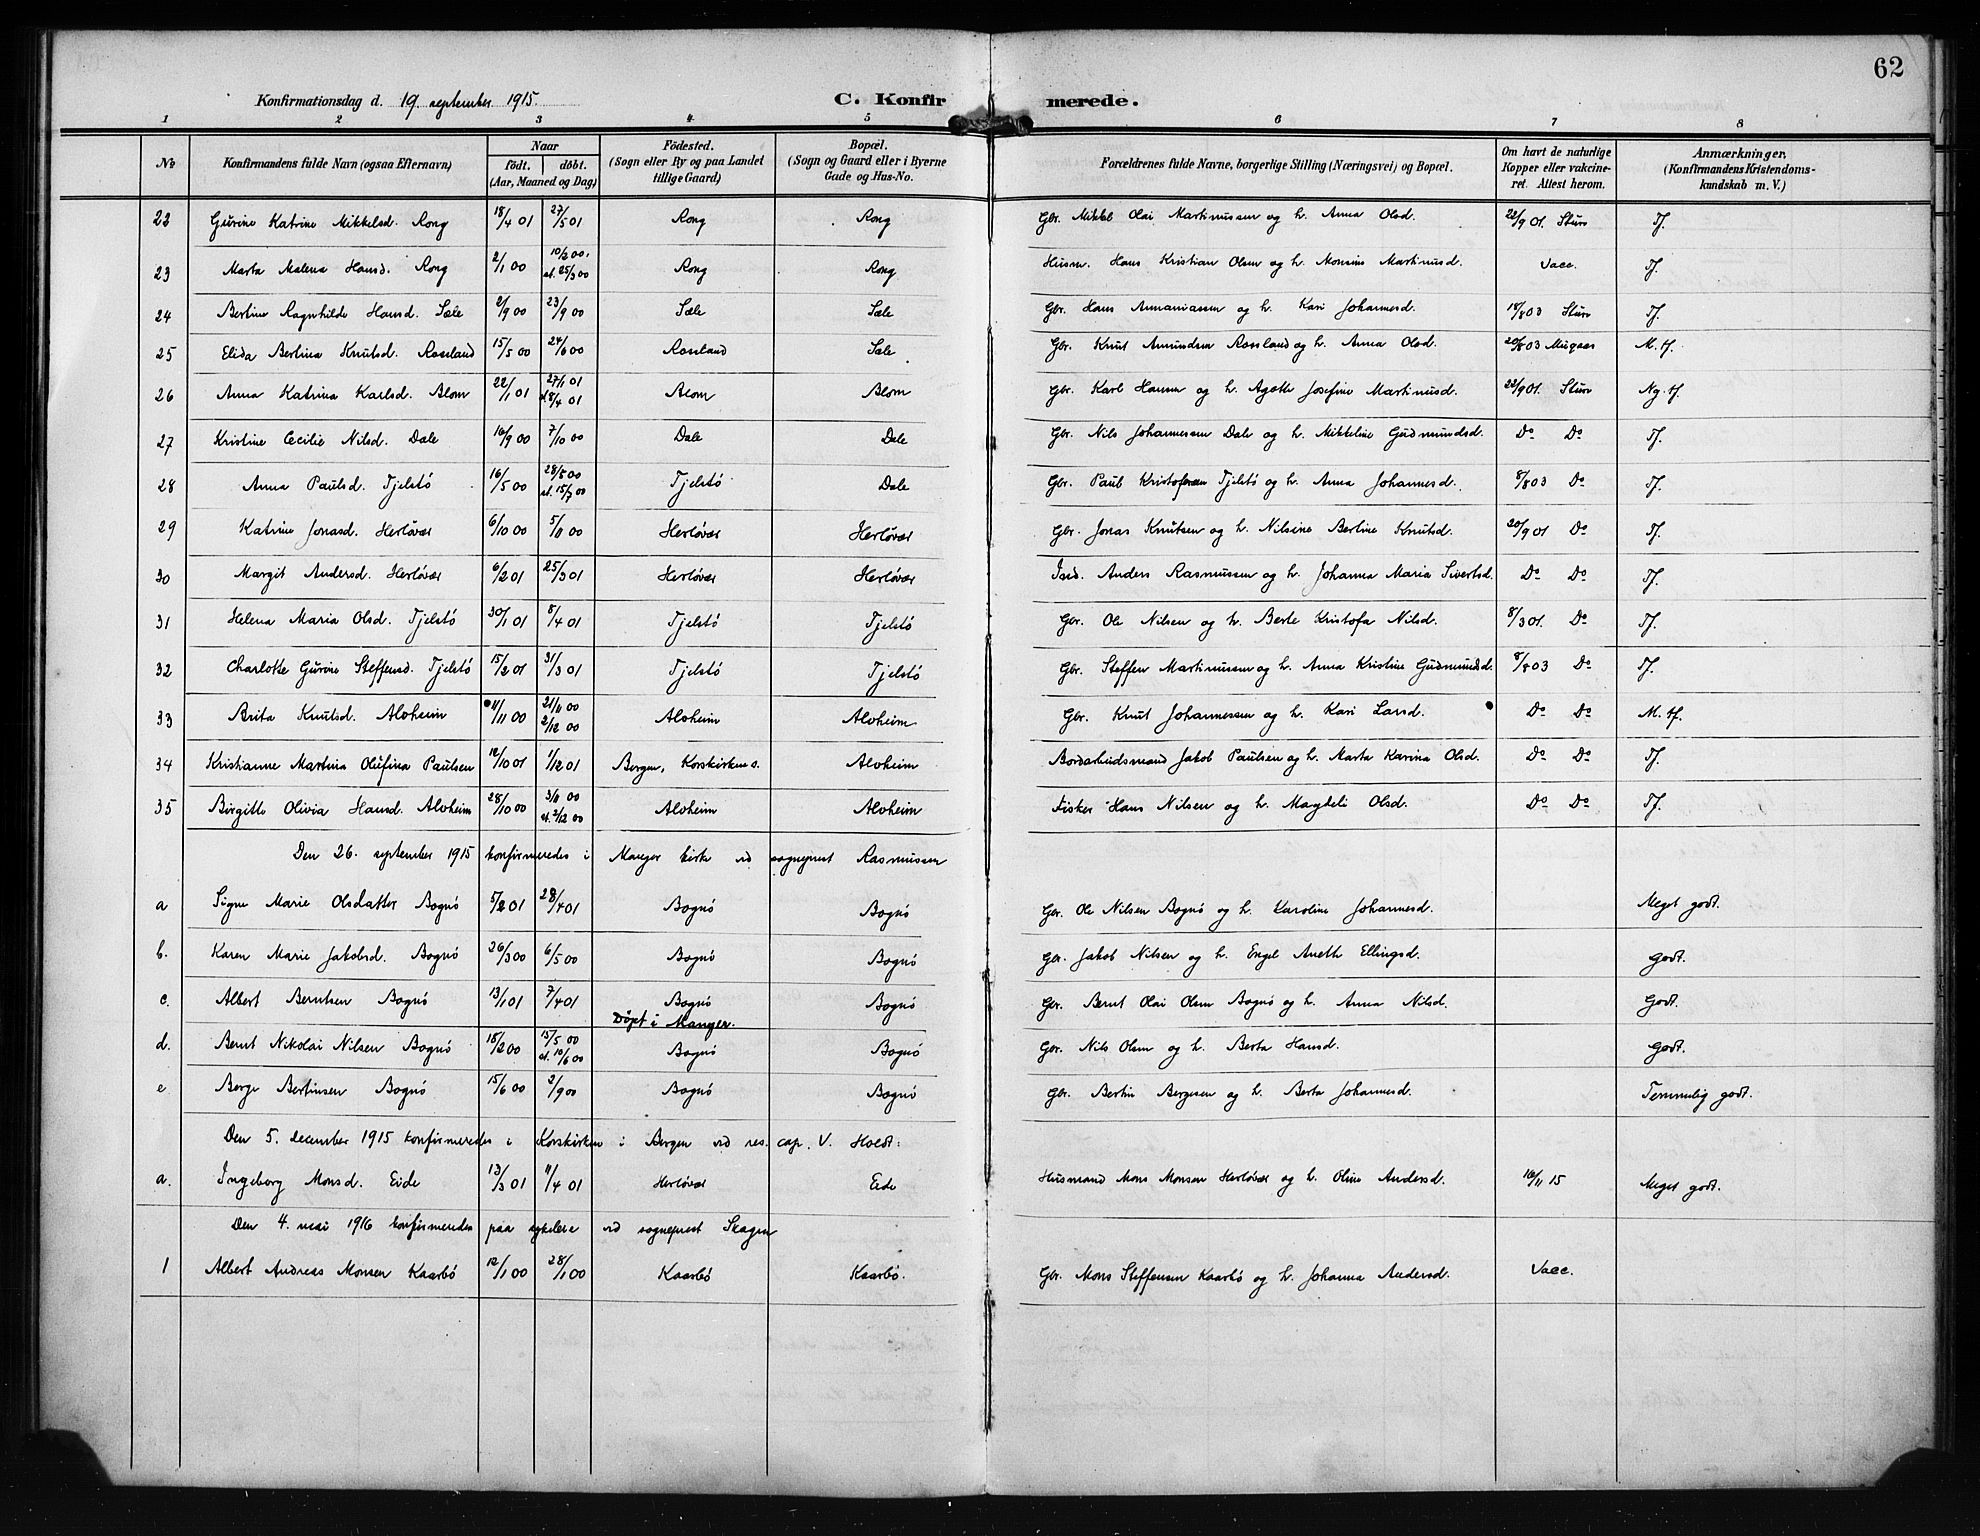 62
Konfirmationsdag d. 19. september 1915. C. Konfirmerede.
1 2 3 4 5 6 7 8
No Konfirmandens fulde Navn (ogsaa Efternavn) Naar født. døbt. (Aar, Maaned og Dag) Fødested. (Sogn eller By og paa Landet tillige Gaard) Bopæl. (Sogn og Gaard eller i Byerne Gade og Hus-No. Forældrenes fulde Navne, borgerlige Stilling (Næringsvei) og Bopæl. Om havt de naturlige Kopper eller vakcineret. Attest herom. Anmærkninger. (Konfirmandens Kristendomskundskab m. V.)
23 Gurine Katrine Mikkelsd. Rong 18/4 01 27/5 01 Rong Rong Gbr. Mikkel Olai Martinussen og h. Anna Olsd. 22/9 01. Sture Tf.
23 Marta Malena Hansd. Rong 2/1 00 10/2 00. st. 25/3 00 Rong Rong Husm. Hans Kristian Olsen og h. Monsine Martinusd. Vacc. Tf.
24 Bertine Ragnhilde Hansd. Sæle 2/9 00 23/9 00 Sæle Sæle Gbr. Hans Annaniassen og h. Kari Johannesd. 18/8 03 Sture Tf.
25 Elida Bertina Knutsd. Rossland 15/5 00 24/6 00 Rossland Sæle Gbr. Knut Amundsen Rossland og h. Anna Olsd. 20/8 03 M. tf.
26 Anna Katrina Karlsd. Blom 22/1 01 27/1 01 st. 8/4 01 Blom Blom Gbr. Karl Hansen og h. Agathe Josefine Martinusd. 22/9 01. Sture Ng. tf.
27 Kristine Cecilie Nilsd. Dale 16/9 00 7/10 00 Dale Dale Gbr. Nils Johannessen Dale og h. Mikkeline Gudmundsd. Do Do Tf.
28 Anna Paulsd. Tjelstö 16/5 00 28/5 00 st. 15/7 00 Tjelstö Dale Gbr. Paul Kristofersen Tjelstö og h. Anna Johannesd. 8/8 03 Do Tf.
29 Katrine Jonasd. Herlövær 6/10 00 5/11 00 Herlövær Herlövær Gbr. Jonas Knutsen og h. Nilsine Bertine Knutsd. 20/9 01 Do Tf.
30 Margit Andersd. Herlövær 6/2 01 25/3 01 Herlövær Herlövær Inds. Anders Rasmussen og h. Johanna Maria Sivertsd. Do Do Tf.
31 Helena Maria Olsd. Tjelstö 30/1 01 8/4 01 Tjelstö Tjelstö Gbr. Ole Nilsen og h. Berte Kristofa Nilsd. 8/3 01. Do Tf.
32 Charlotte Gurine Steffensd. Tjelstö 15/2 01 31/3 01 Tjelstö Tjelstö Gbr. Steffen Martinussen og h. Anna Kristine Gudmundsd. 8/8 03 Do Tf.
33 Brita Knutsd. Alvheim 11/11 00 21/11 00 2/12 00 Alvheim Alvheim Gbr. Knut Johannessen og h. Kari Larsd. Do Do M. tf.
34 Kristianne Martina Olufina Paulsen 12/10 01 1/12 01 Bergen, Korskirkens. Alvheim Bordarbeidsmand Jakob Paulsen og h. Marta Karina Olsd. Do Do Tf.
35 Birgitte Olivia Hansd. Alvheim 28/10 00 3/11 00 st. 2/12 00 Alvheim Alvheim Fisker Hans Nilsen og h. Magdeli Olsd. Do Do Tf.
Den 26. september 1915 konfirmeredes i Manger kirke ved sogneprest Rasmussen
a Signe Marie Olsdatter Bognö 5/2 01 28/4 01 Bognö Bognö Gbr. Ole Nilsen Bognö og h. Karoline Johannesd. Meget godt.
b. Karen Marie Jakobsd. Bognö 26/3 00 6/5 00 Bognö Bognö Gbr. Jakob Nilsen og h. Engel Anethe Ellingsd. Godt.
c. Albert Berntsen Bognö 13/1 01 7/4 01 Bognö Döpt i Manger. Bognö Gbr. Bernt Olai Olsen Bognö og h. Anna Nilsd. Godt.
d. Bernt Nikolai Nilsen Bognö 18/2 00 15/5 00 st. 10/6 00 Bognö Bognö Gbr. Nils Olsen og h. Berta Hansd. Godt.
e Berge Bertinsen Bognö 15/6 00 2/9 00 Bognö Bognö Gbr. Bertin Bergesen og h. Berta Johannesd. Temmelig godt.
Den 5. december 1915 konfirmeredes i Korskirken i Bergen ved res. cap. V. Holdt:
a. Ingeborg Monsd. Eide 13/3 01 11/4 01 Herlövær Eide Husmand Mons Monsen Herlövær og h. Oline Andersd. 16/11 15 Meget godt.
Den 4. mai 1916 konfirmeredes paa sykeleie ved sogneprest Skagen
1 Albert Andreas Monsen Kaarbö 12/1 00 28/1 00 Kaarbö Kaarbö. Gbr. Mons Steffensen Kaarbö og h. Johanna Andersd. Vacc.